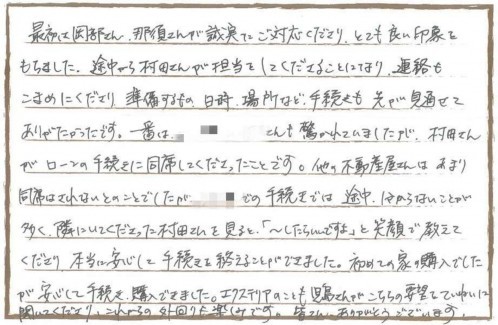 最初は岡部さん、那須さんが誠実にご対応くださり、とても良い印象を
もちました。途中から村田さんが担当をしてくださることになり、連絡も
こまめにくださり準備するもの、日時、場所など、手続きも先が見通せて
ありがたかったです。一番は、さんも驚かれていましたが、村田さん
がローンの手続きに同席してくださったことです。他の不動産屋さんはあまり
同席はされないとのことでしたが での手続きでは途中、分からないことが
多く、隣にいてくださった村田さんを見ると、「〜したらいいですよ」と笑顔で教えて
くださり本当に安心して手続きを終えることができました。初めての家の購入でした
が安心して手続き、購入できました。エクステリアのことも児島さんがこちらの要望をていねいに
聞いてくださり、これからの外回りも楽しみです。皆さん、ありがとうございます。